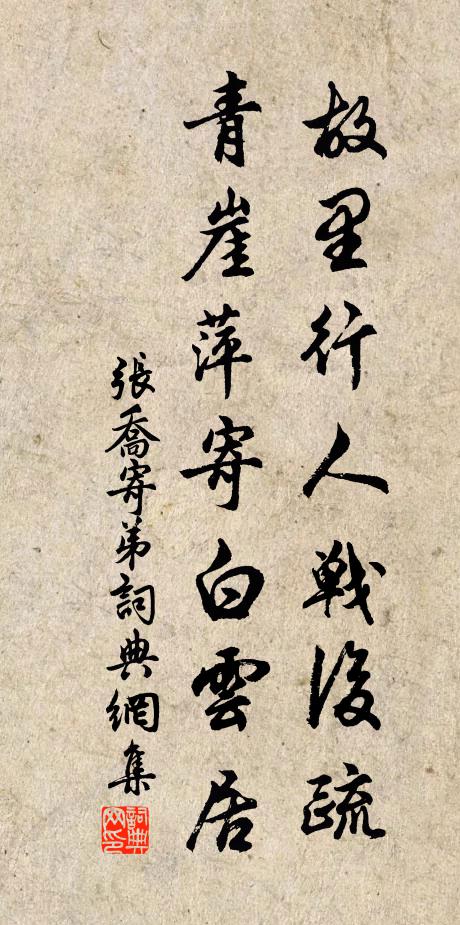 故里行人戰後疏
青崖萍寄白雲居
張喬寄弟詞典網集
詞典網印